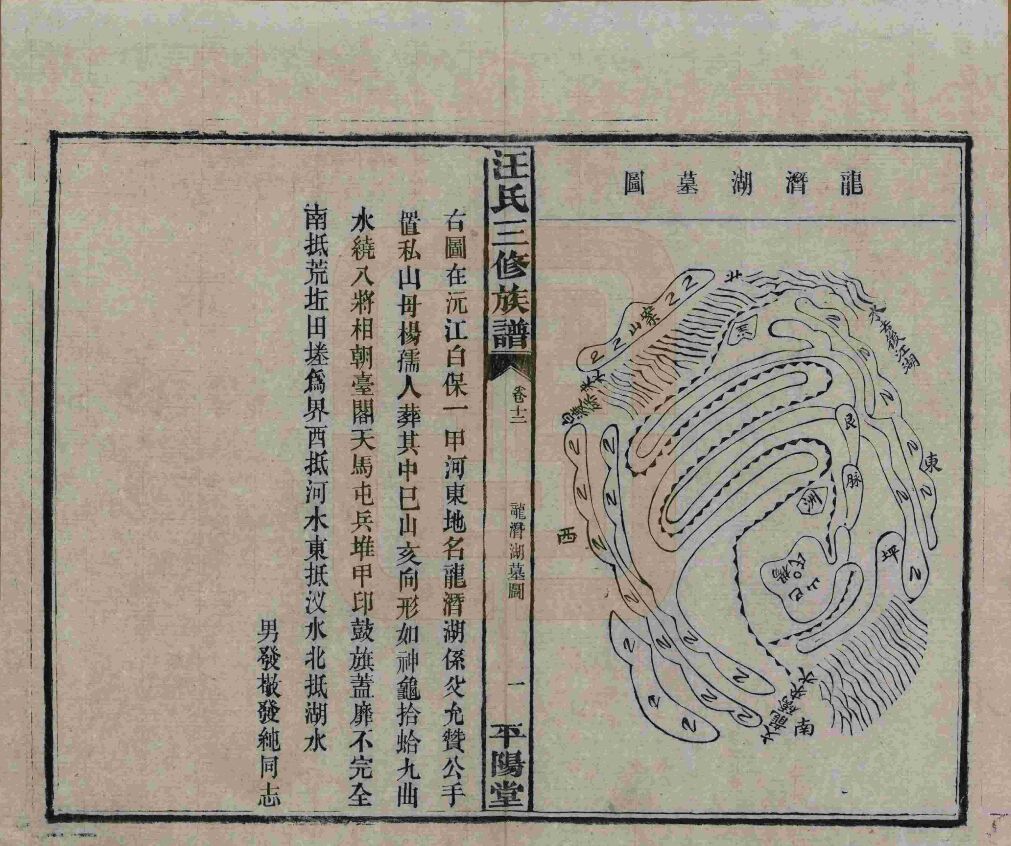 龍潛湖墓圖
北
案山
水
去後江湖
艮
脈
東
洲
坪
西
巳山
楊氏
南
水
汪氏三修族譜
卷十二
龍潛湖墓圖
一
平陽堂
右圖在沅江白保一甲河東地名龍潛湖係父允贊公手
置私山毋楊孺人葬其中巳山亥向形如神龜拾蛤九曲
水繞入將相朝臺閣天馬屯兵堆甲印鼓旗蓋靡不完全
南抵荒坵田墶爲界西抵河水東抵汊水北抵湖水
男發橄發純同志